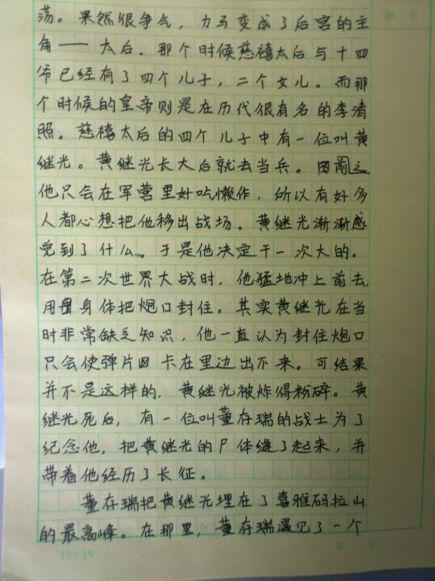 荡。果然很争气，力马变成了后宫的主
角——太后。那个时候慈禧太后与十四
爷已经有了四个儿子，二个女儿。而那
个时候的皇帝则是在历代很有名的李清
照。慈禧太后的四个儿子中有一位叫黄
继光。黄继光长大后就去当兵。因
他只会在军营里好吃懒作，所以有好多
人都心想把他移出战场。黄继光渐渐感
觉到了什么。于是他决定干一次大的。
在第二次世界大战时，他猛地冲上前去，
用身体把炮口封住。其实黄继光在当
时非常缺乏知识，他一直认为封住炮口
只会使弹片卡在里边出不来。可结果
并不是这样的，黄继光被炸得粉碎。黄
继光死后，有一位叫董存瑞的战士为了
纪念他，把黄继光的尸体缝了起来，并
带着他经历了长征。
董存瑞把黄继光埋在了喜雅码拉山
的最高峰。在那里，董存瑞遇见了一个
17×19